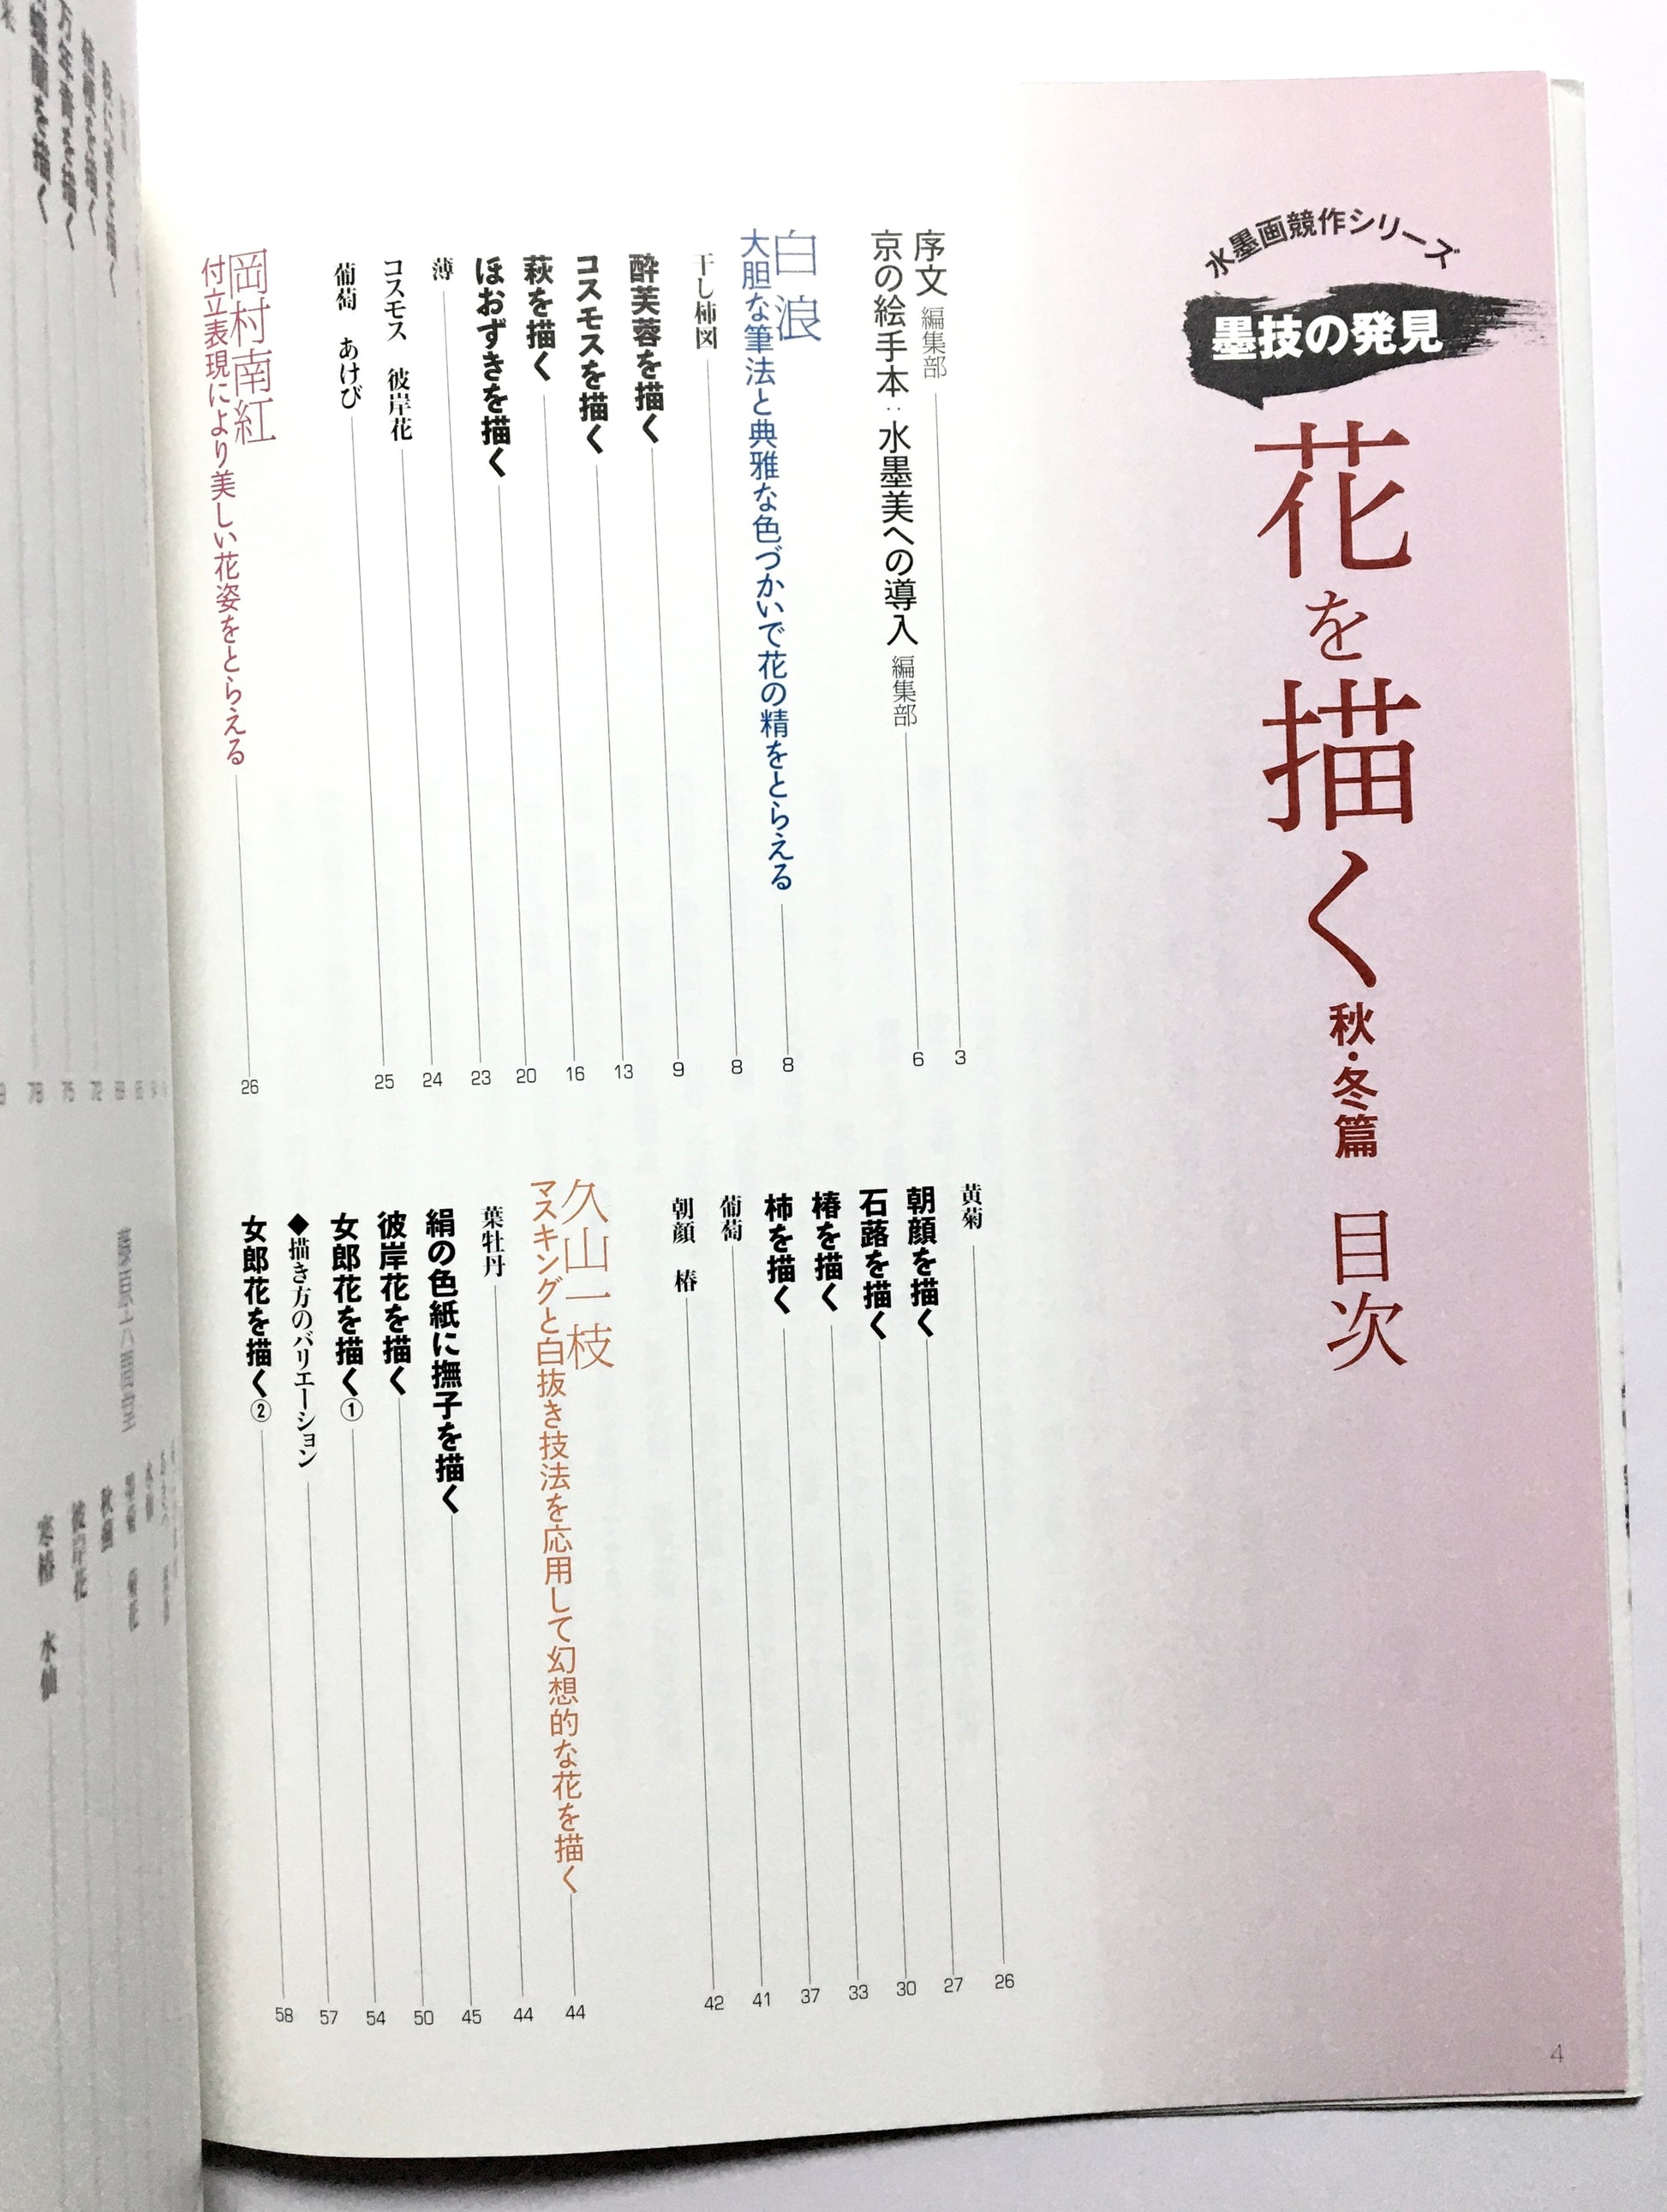 水墨画競作シリーズ
墨技の発見
花を描く 秋・冬篇 目次
序文 編集部 3
京の絵手本:水墨美への導入 編集部 6
白浪
大胆な筆法と典雅な色づかいで花の精をとらえる 8
干し柿図 8
酔芙蓉を描く 9
コスモスを描く 13
萩を描く 16
ほおずきを描く 20
薄 23
コスモス 彼岸花 24
葡萄 あけび 25
岡村南紅
付立表現により美しい花姿をとらえる 26
黄菊 26
朝顔を描く 27
石蕗を描く 30
椿を描く 33
柿を描く 37
葡萄 41
朝顔 椿 42
久山一枝
マスキングと白抜き技法を応用して幻想的な花を描く 44
葉牡丹 44
絹の色紙に撫子を描く 45
彼岸花を描く 50
女郎花を描く① 54
◆描き方のバリエーション 57
女郎花を描く② 58
4
桔梗を描く
万年青を描く
を描く
72
75
78
藤原六間堂
秋
彼岸花
寒椿 水仙